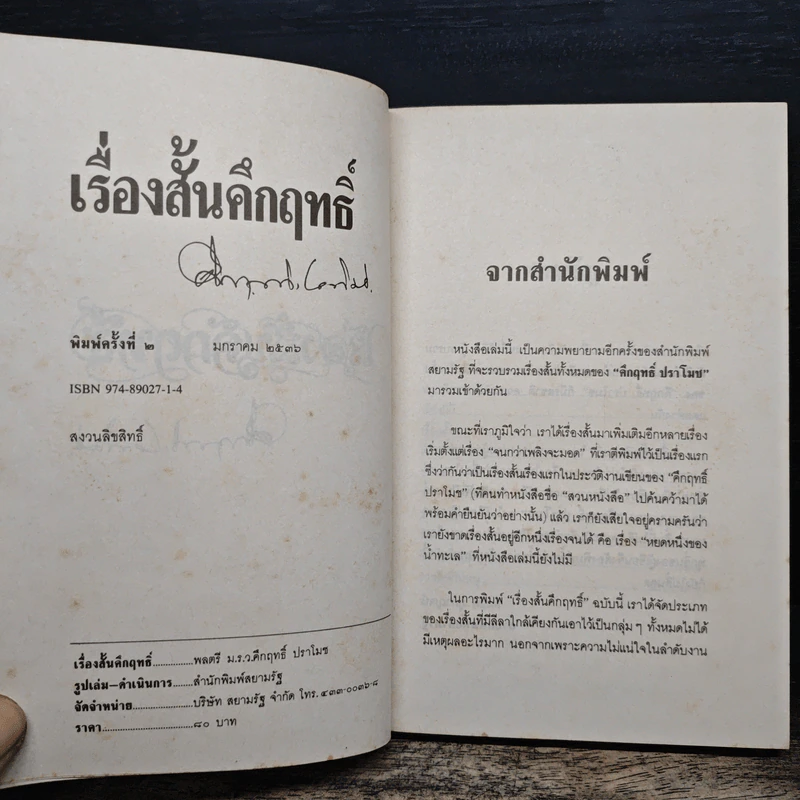 เรื่องสั้นคึกฤทธิ์
พิมพ์ครั้งที่ ๒ มกราคม ๒๕๓๖
ISBN 974-89027-1-4
สงวนลิขสิทธิ์
เรื่องสั้นคึกฤทธิ์..............พลตรี ม.ร.ว.คึกฤทธิ์ ปราโมช
รูปเล่ม—ดำเนินการ.......สำนักพิมพ์สยามรัฐ
จัดจำหน่าย.....................บริษัท สยามรัฐ จำกัด โทร. ๔๓๓-๐๐๓๖-๘
ราคา................................๘๐ บาท
จากสำนักพิมพ์
หนังสือเล่มนี้ เป็นความพยายามอีกครั้งของสำนักพิมพ์
สยามรัฐ ที่จะรวบรวมเรื่องสั้นทั้งหมดของ “คึกฤทธิ์ ปราโมช”
มารวมเข้าด้วยกัน
ขณะที่เราภูมิใจว่า เราได้เรื่องสั้นมาเพิ่มเติมอีกหลายเรื่อง
เริ่มตั้งแต่เรื่อง “จนกว่าเพลิงจะมอด” ที่เราตีพิมพ์ไว้เป็นเรื่องแรก
ซึ่งว่ากันว่าเป็นเรื่องสั้นเรื่องแรกในประวัติงานเขียนของ “คึกฤทธิ์
ปราโมช” (ที่คนทำหนังสือชื่อ “สวนหนังสือ” ไปค้นคว้ามาได้
พร้อมคำยืนยันว่าอย่างนั้น) แล้ว เราก็ยังเสียใจอยู่ครามครันว่า
เรายังขาดเรื่องสั้นอยู่อีกหนึ่งเรื่องจนได้ คือ เรื่อง “หยดหนึ่งของ
น้ำทะเล” ที่หนังสือเล่มนี้ยังไม่มี
ในการพิมพ์ “เรื่องสั้นคึกฤทธิ์” ฉบับนี้ เราได้จัดประเภท
ของเรื่องสั้นที่มีลีลาใกล้เคียงกันเอาไว้เป็นกลุ่ม ๆ ทั้งหมดไม่ได้
มีเหตุผลอะไรมาก นอกจากเพราะความไม่แน่ใจในลำดับงาน